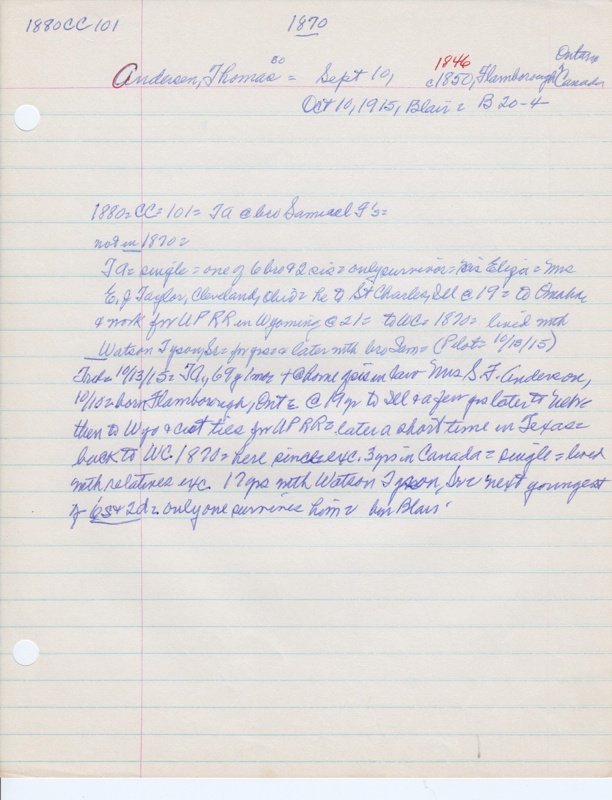 1880CC 101
1870
Anderson, Thomas = Sept 10, 1846 c1850, Flamborough, Ontario Canada
Oct 10, 1915, Blair = B 20-4
1880 = CC = 101 = TA @ bro Samuel F's =
not in 1870 =
TA = single = one of 6 bro & 2 sis = only survivor = sis Eliza = Mrs
E. J Taylor, Cleveland, Ohio = he to St Charles, Ill @ 19 = to Omaha
& work for UP RR in Wyoming @ 21 = to WC = 1870 = lived with
Watson Tyson, Sr = for yrs & later with bro Sam = (Pilot = 10/13/15)
Trib = 10/13/15 = TA, 69 y 1 mo + @ home of sis in law Mrs S. F. Anderson,
10/10 = born Flamborough, Ont = @ 19 yr to Ill & a few yrs later to Nebr
then to Wyo & cut ties for UP RR = later a short time in Texas =
back to WC 1870 = here since exc. 3 yrs in Canada = single = lived
with relatives exc. 17 yrs with Watson Tyson, Sr = next youngest
of 6s & 2d = only one survives him = bur Blair